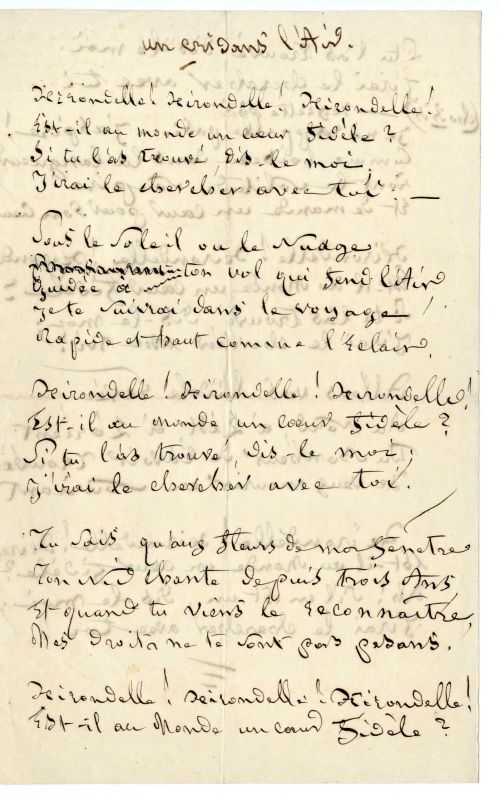 un cri dans l'Air.
Hirondelle ! Hirondelle, Hirondelle !
Est-il au monde un cœur Fidèle ?
Si tu l'as trouvé dis-le moi,
J'irai le chercher avec toi. —
Sous le Soleil ou le Nuage
Guidée à ton vol qui Fend l'Air
Je te suivrai dans le voyage !
Rapide et haut comme l'Eclair.
Hirondelle ! Hirondelle ! Hirondelle !
Est-il au Monde un cœur Fidèle ?
Si tu l'as trouvé, dis-le moi ;
J'irai le chercher avec toi.
Tu sais qu'aux Fleurs de ma Fenêtre
Ton Nid Chante depuis trois Ans,
Et quand tu viens le reconnaître,
Mes droits ne te sont pas pesans.
Hirondelle ! Hirondelle ! Hirondelle !
Est-il au Monde un cœur Fidèle ?